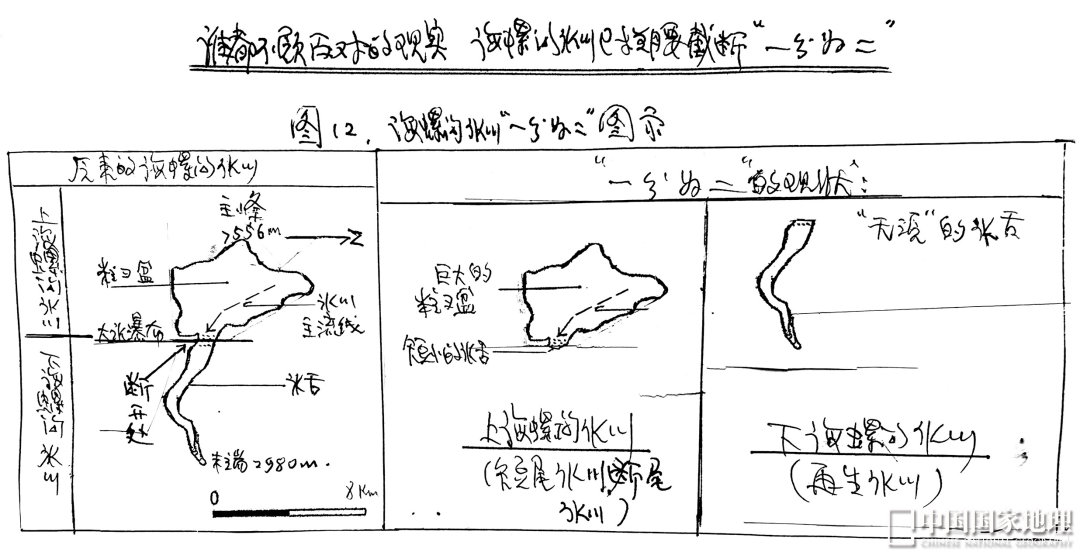 谁都不愿面对的现实 海螺沟冰川已被拦腰截断“一分为二”
图12. 海螺沟冰川“一分为二”图示
原来的海螺沟冰川
“一分为二”的现状:
上海螺沟冰川
下海螺沟冰川
主峰
7556m
粒雪盆
大冰瀑布
冰川
主流线
断
开
处
冰舌
末端2980m.
0
8Km
巨大的
粒雪盆
短小的冰舌
上海螺沟冰川
(短尾冰川,断尾
冰川)
“无源”的冰舌
下海螺沟冰川
(再生冰川)
中国国家地理
CHINESE NATIONAL GEOGRAPHY